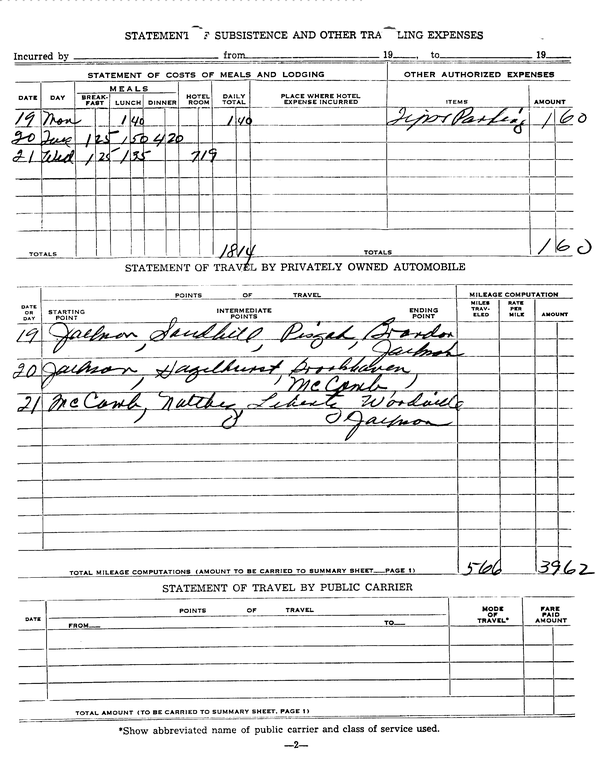 STATEMENT F SUBSISTENCE AND OTHER TRA LING EXPENSES
Incurred by from 19 , to 19
STATEMENT OF COSTS OF MEALS AND LODGING OTHER AUTHORIZED EXPENSES
DATE DAY MEALS BREAK-FAST LUNCH DINNER HOTEL ROOM DAILY TOTAL PLACE WHERE HOTEL EXPENSE INCURRED ITEMS AMOUNT
19 Mon 1 40 1 40 Tips & Parking 1 60
20 Tues 1 25 1 50 4 20
21 Wed 1 25 1 35 7 19
TOTALS 18 14 TOTALS 1 60
STATEMENT OF TRAVEL BY PRIVATELY OWNED AUTOMOBILE
POINTS OF TRAVEL MILEAGE COMPUTATION
DATE OR DAY STARTING POINT INTERMEDIATE POINTS ENDING POINT MILES TRAV-ELED RATE PER MILE AMOUNT
19 Jackson, Sandhill, Pisgah, Brandon
Jackson
20 Jackson, Hazelhurst, Brookhaven,
McComb,
21 McComb, Natchez, Liberty, Woodville
Jackson
TOTAL MILEAGE COMPUTATIONS (AMOUNT TO BE CARRIED TO SUMMARY SHEET PAGE 1) 566 39 62
STATEMENT OF TRAVEL BY PUBLIC CARRIER
DATE POINTS OF TRAVEL MODE OF TRAVEL* FARE PAID AMOUNT
FROM TO
TOTAL AMOUNT (TO BE CARRIED TO SUMMARY SHEET, PAGE 1)
*Show abbreviated name of public carrier and class of service used.
—2—